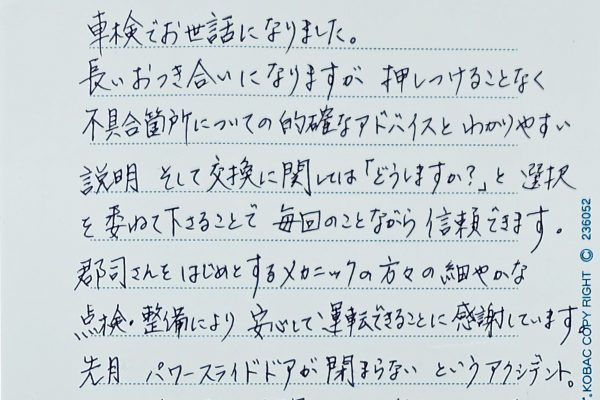 車検でお世話になりました。
長いおつき合いになりますが 押しつけることなく
不具合箇所についての的確なアドバイスと わかりやすい
説明 そして交換に関しては「どうしますか?」と 選択
を委ねて下さることで 毎回のことながら信頼できます。
郡司さんをはじめとするメカニックの方々の細やかな
点検・整備により 安心して運転できることに感謝しています
先月 パワースライドドアが閉まらない というアクシデント。
KOBAC COPY RIGHT © 236052